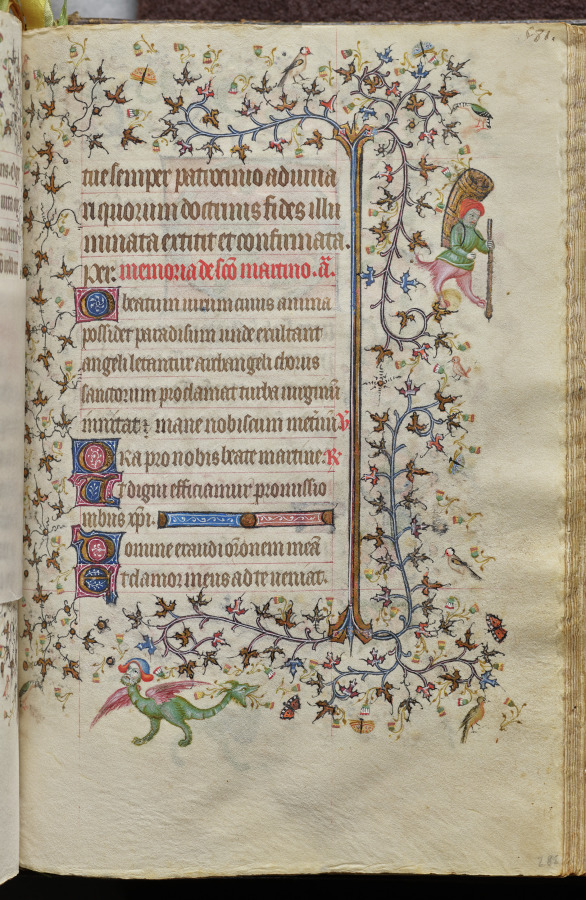 tue semper patrocinio adiuua
ri quorum doctrinis fides illu
minata extitit et confirmata.
per. memoria de sc̄o martino. a̅.
O beatum uirum cuius anima
possidet paradisum unde exultant
angeli letantur archangeli chorus
sanctorum proclamat turba uirginū
inuitat mane nobiscum
Ora pro nobis beate martine. R
Ut digni efficiamur promissio
nibus xp̄i.
Domine exaudi or̄onem meā
Et clamor meus ad te ueniat.